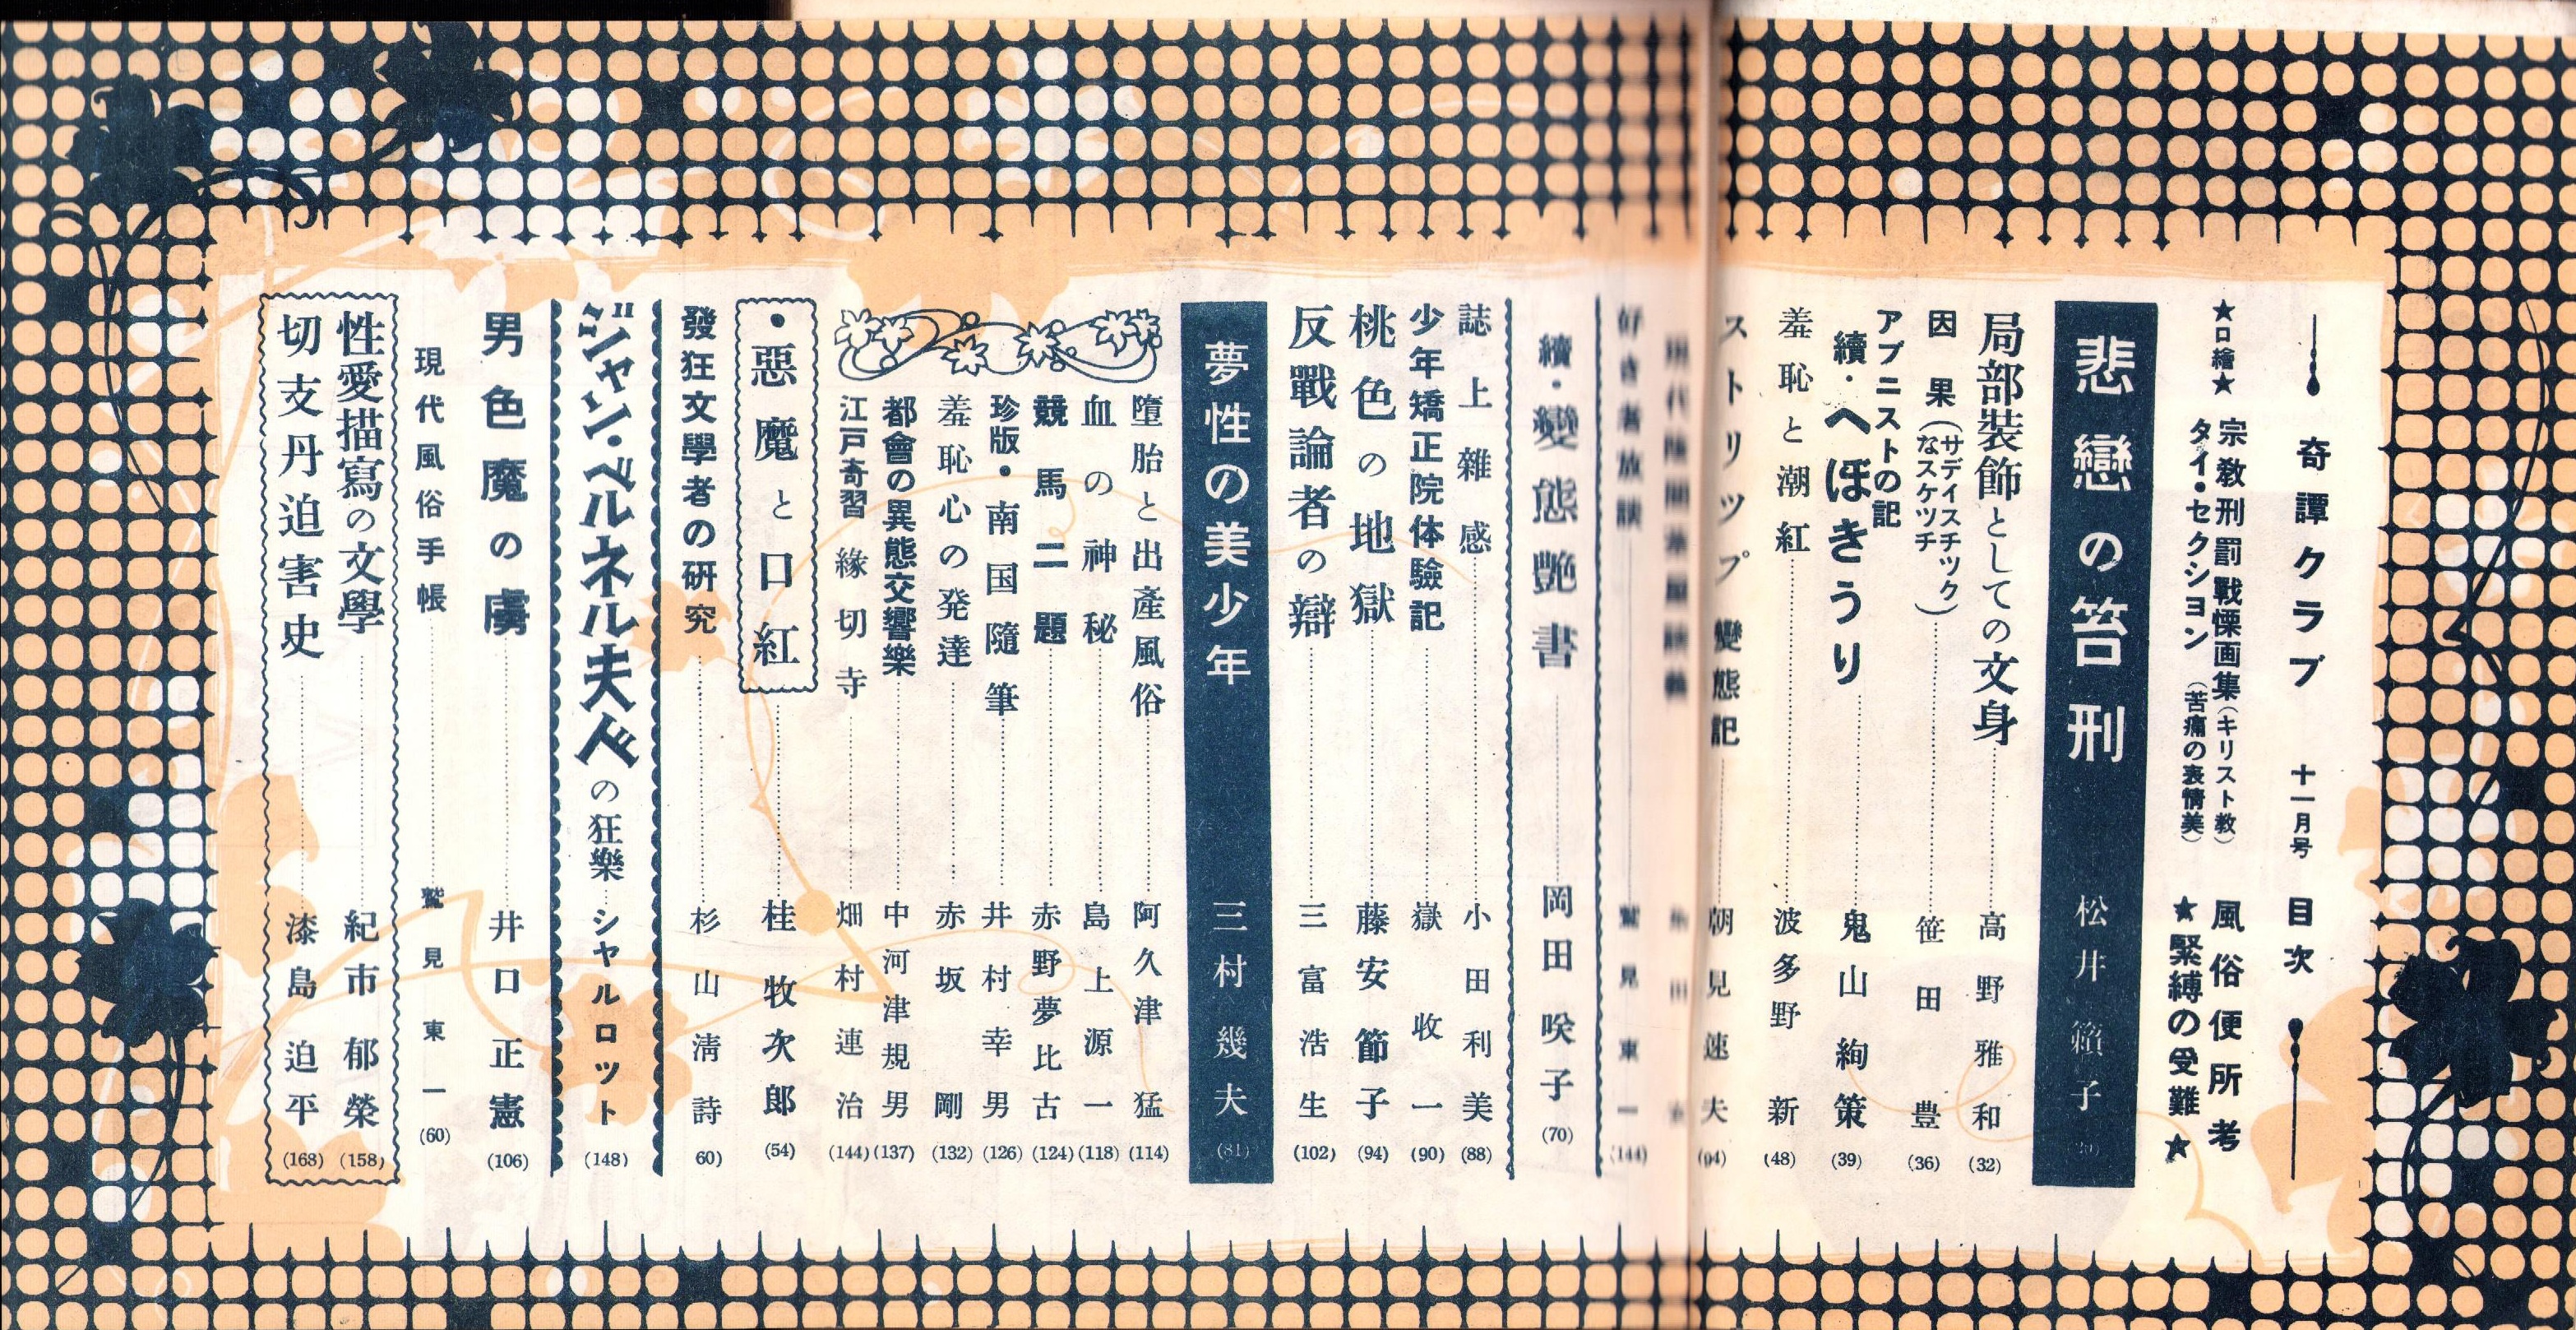 奇譚クラブ 十一月号 目次
★口繪★ 宗教刑罰戰慄画集(キリスト教) 風俗便所考
タイ・セクション (苦痛の表情美) ★緊縛の受難★
悲戀の笞刑 松井籟子
局部装飾としての文身 高野雅和 (32)
因果(サディスチックなスケッチ) 笹田豊 (36)
アブニストの記
續・へぼきうり 鬼山絢策 (39)
羞恥と潮紅 波多野新 (48)
ストリップ變態記 朝見速夫
好き者放談 鷲見東一 (144)
續・變態艶書 岡田咲子 (70)
誌上雜感 小田利美 (88)
少年矯正院体驗記 嶽收一 (90)
桃色の地獄 藤安節子 (94)
反戰論者の辯 三富浩生 (102)
夢性の美少年 三村幾夫 (81)
墮胎と出産風俗 阿久津猛 (114)
血の神秘 島上源一 (118)
競馬二題 赤野夢比古 (124)
珍版・南国隨筆 井村幸男 (126)
羞恥心の発達 赤坂剛 (132)
都會の異態交響樂 中河津規男 (137)
江戸奇習 緣切寺 畑村連治 (144)
・惡魔と口紅 桂牧次郎 (54)
發狂文學者の研究 杉山淸詩 60)
ジャン・ベルネル夫人の狂樂 シャルロット (148)
男色魔の虜 井口正憲 (106)
現代風俗手帳 鷲見東一 (60)
性愛描寫の文學 紀市郁榮 (158)
切支丹迫害史 漆島迫平 (168)